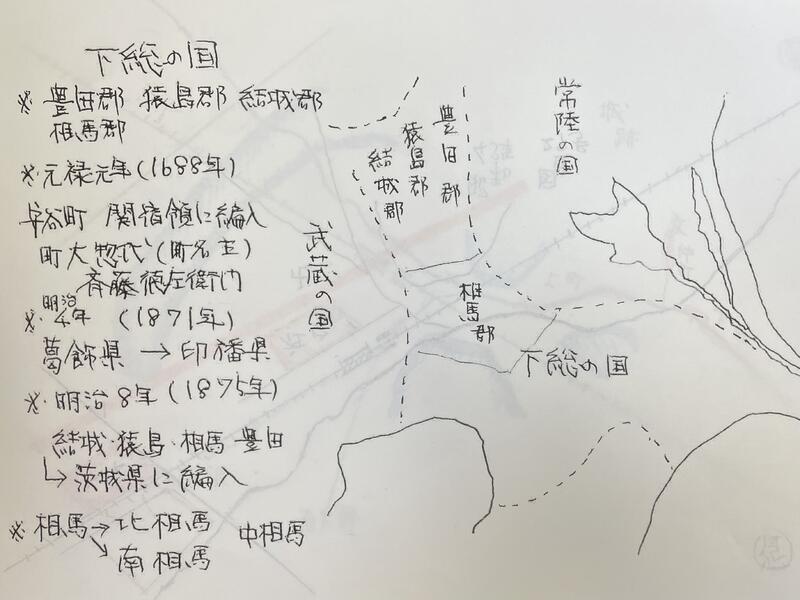 下総の国
※ 豊田郡 猿島郡 結城郡
相馬郡
※元禄元年(1688年)
守谷町 関宿領に編入
町大惣代(町名主)
斉藤徳左衛門
※明治4年 (1871年)
葛飾県 → 印旛県
※ 明治8年(1875年)
結城・猿島・相馬 豊田
↳茨城県に編入
※ 相馬→北相馬 中相馬
↘南相馬
武蔵の国
結城郡
猿島郡
豊田郡
常陸の国
相馬郡
下総の国